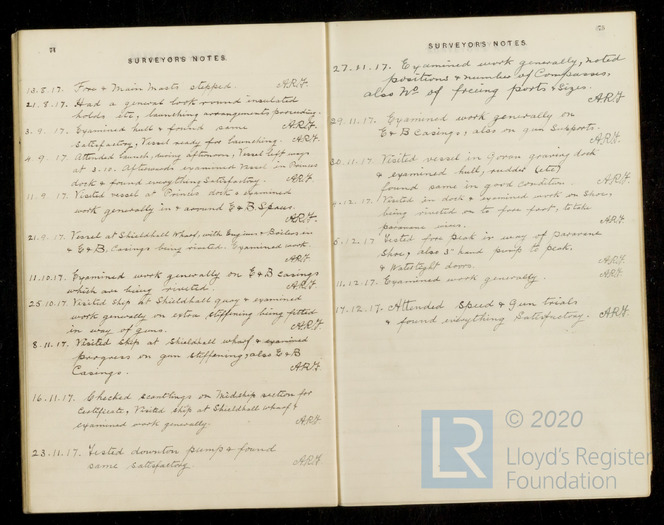 74
SURVEYOR'S NOTES.
13.8.17. Fore & Main Masts stepped. A.R.F.
21.8.17. Had a general look round insulated
holds etc, launching arrangements proceeding. A.R.F.
3.9.17. Examined hull & found same
satisfactory, Vessel ready for launching. A.R.F.
4.9.17. Attended launch, during afternoon, Vessel left ways
at 3.10. Afterwards examined vessel in Princes
dock & found everything satisfactory. A.R.F.
11.9.17. Visited vessel at Princes dock & examined
work generally in & around E & B Spaces.
A.R.F.
21.9.17. Vessel at Shieldhall Wharf, with Engines & Boilers in
& E & B. Casings being riveted. Examined work.
A.R.F.
11.10.17. Examined work generally on E & B casings
which are being riveted. A.R.F.
25.10.17. Visited ship at Shieldhall quay & examined
work generally on extra stiffening being fitted
in way of guns. A.R.F.
8.11.17. Visited ship at Shieldhall wharf & examined
progress on gun stiffening, also E & B
Casings. A.R.F.
16.11.17. Checked scantlings on Midship section for
Certificate, Visited ship at Shieldhall wharf &
examined work generally. A.R.F.
23.11.17. Tested downton pump & found
same satisfactory. A.R.F.
SURVEYOR'S NOTES
27.11.17. Examined work generally, noted
positions & number of Compasses,
also No. of freeing ports & sizes.
A.R.F.
29.11.17. Examined work generally on
E & B Casings, also on gun supports.
A.R.F.
30.11.17. Visited vessel in Govan graving dock
& examined hull, rudder (etc)
found same in good condition. A.R.F.
.12.17. Visited in dock & examined work on Shoe,
being riveted on to fore foot, to take
paravane wires. A.R.F.
6.12.17. Tested fore peak in way of paravane
Shoe, also 5" hand pump to peak,
& Watertight doors A.R.F.
11.12.17. Examined work generally. A.R.F.
17.12.17. Attended Speed & Gun trials
& found everything satisfactory. A.R.F.
LR © 2020
Lloyd's Register
Foundation